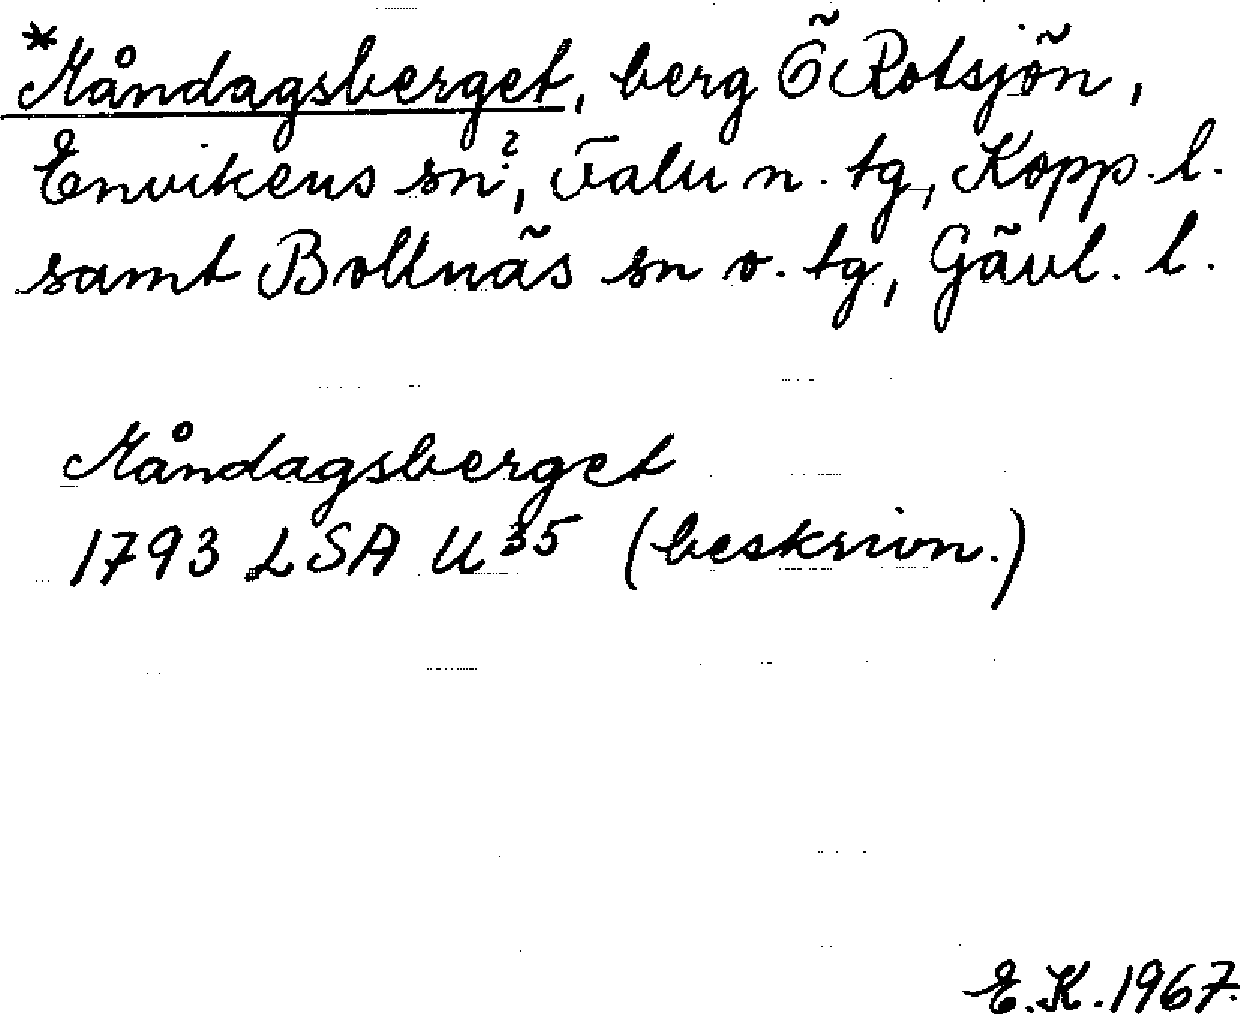 *Måndagsberget, berg Ö Rotsjön,
Envikens sn?, Falu n. tg, Kopp. l.
samt Bollnäs sn o. tg, Gävl. l.
Måndagsberget
1793 LSA U 35 (beskrivn.)
E.K. 1967.